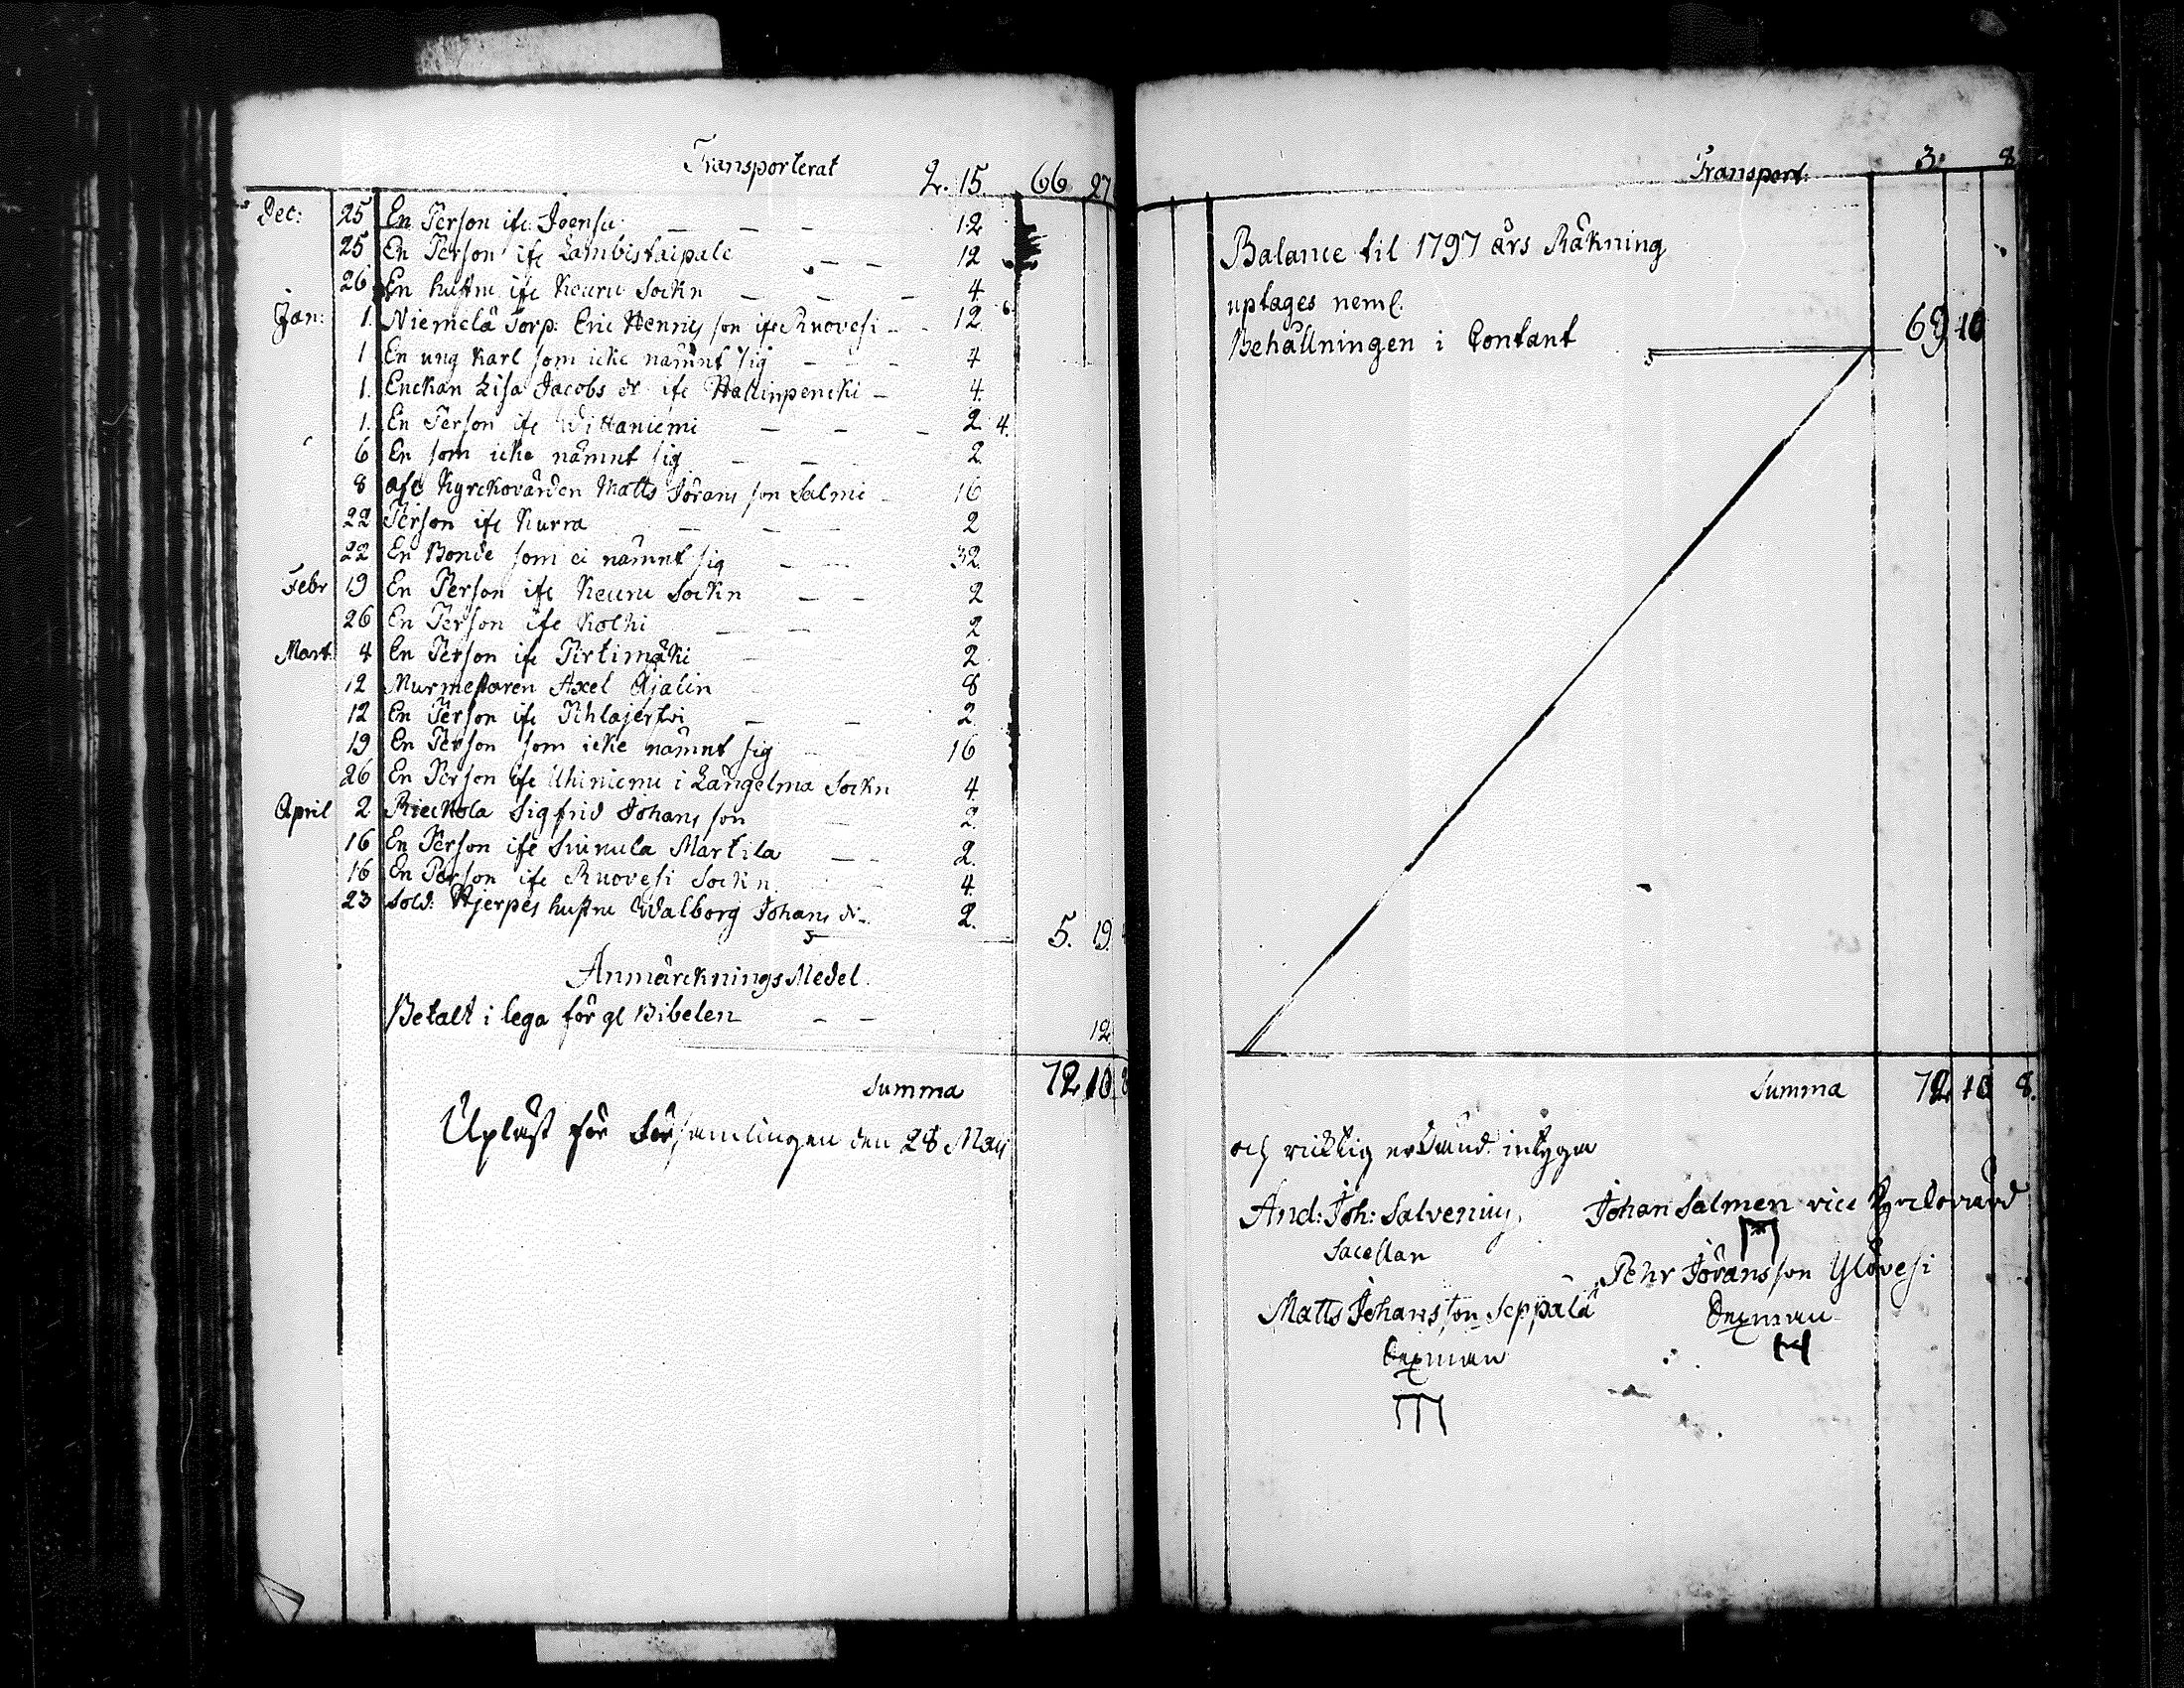 Transporterat 2. 15. 66 27
Dec: 25 En Person ifr. Joensu 12
25 En Person ifr Lambistaipale 12
26 En hustru ifr Keuru Sockn 4.
Jan: 1. Niemelä Torp: Eric Henrics son ifr Ruovesi 12. 6.
1 En ung Karl som icke nämnt sig 4
1. Enckan Lisa Jacobs dr ifr Hallinpencki 4.
1. En Person ifr Wittaniemi 2. 4.
6 En som icke nämnt sig 2.
8 afl Kyrckovärden Matts Jörans son Salmi 16
22 Person ifr Kurra 2
22 En Bonde som ei nämnt sig 32.
Febr 19 En Person ifr Keuru Sockn 2
26 En Person ifr Kolhi 2
Mart. 4 En Person ifr Pirtimäki 2.
12 Murmestaren Axel Ajalin 8
12 En Person ifr Pihlajerfwi 2.
19 En Person som icke nämnt sig 16
26 En Person ifr Uhiniemi i Längelmä Sockn 4.
April 2 Rieckola Sigfrid Johans son 2.
16 En Person ifr Martila 2.
16 En Person ifr Ruovesi Sockn. 4.
23 Sold: Hjerpes hustru Walborg Johans dr 2. 5. 19.
Anmärcknings Medel.
Betalt i lega för gl Bibelen 12.
Summa 72 10 8
Upläst för Församlingen den 28 Maij
Transport: 3. 8
Balance til 1797 års Räkning
uptages neml.
Behållningen i Contant 69 10
Summa 72 10 8.
och richtig erkänd intyga
And: Joh: Salvenius, Johan Salmen vice Kyrckovärd
Sacellan
Pehr Jörans son Ylövesi
Matts Johans son Seppälä Sexman
Sexman